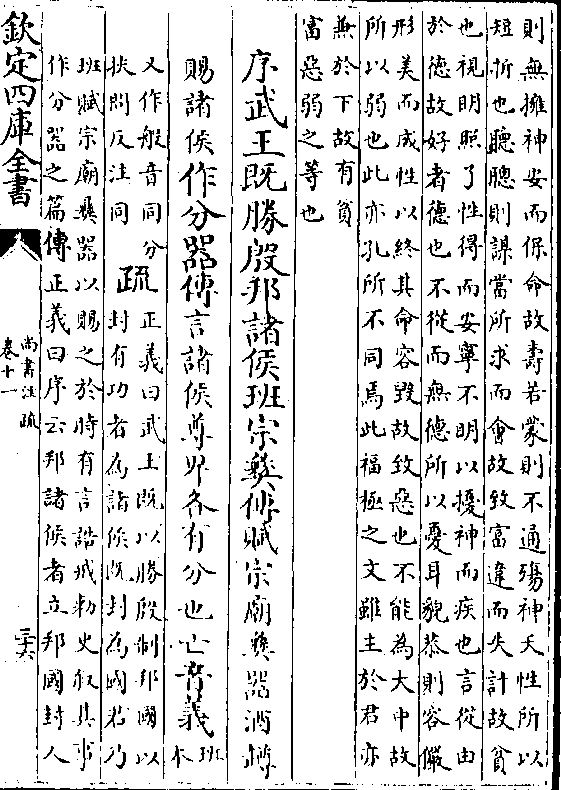 則無擁神安而保命故壽若蒙則不通殤神夭性所以
短折也聽聰則謀當所求而會故致富違而失計故貧
也視明照了性得而安寧不明以擾神而疾也言從由
於德故好者德也不從而無德所以憂耳貌恭則容儼
形美而成性以終其命容毀故致惡也不能為大中故
所以弱也此亦孔所不同焉此福極之文雖主於君亦
兼於下故有貧
富惡弱之等也
序武王既勝殷邦諸侯班宗彝傳賦宗廟彝器酒罇
賜諸侯作分器傳言諸侯尊卑各有分也亡音義班本
又作般音同分
扶問反注同
疏
正義曰武王既以勝殷制邦國以
封有功者為諸侯既封為國君乃
班賦宗廟彝器以賜之於時有言誥戒勑史叙其事
作分器之篇傳正義曰序云邦諸侯者立邦國封人
欽定四庫全書
尚書注疏
卷十一
三六